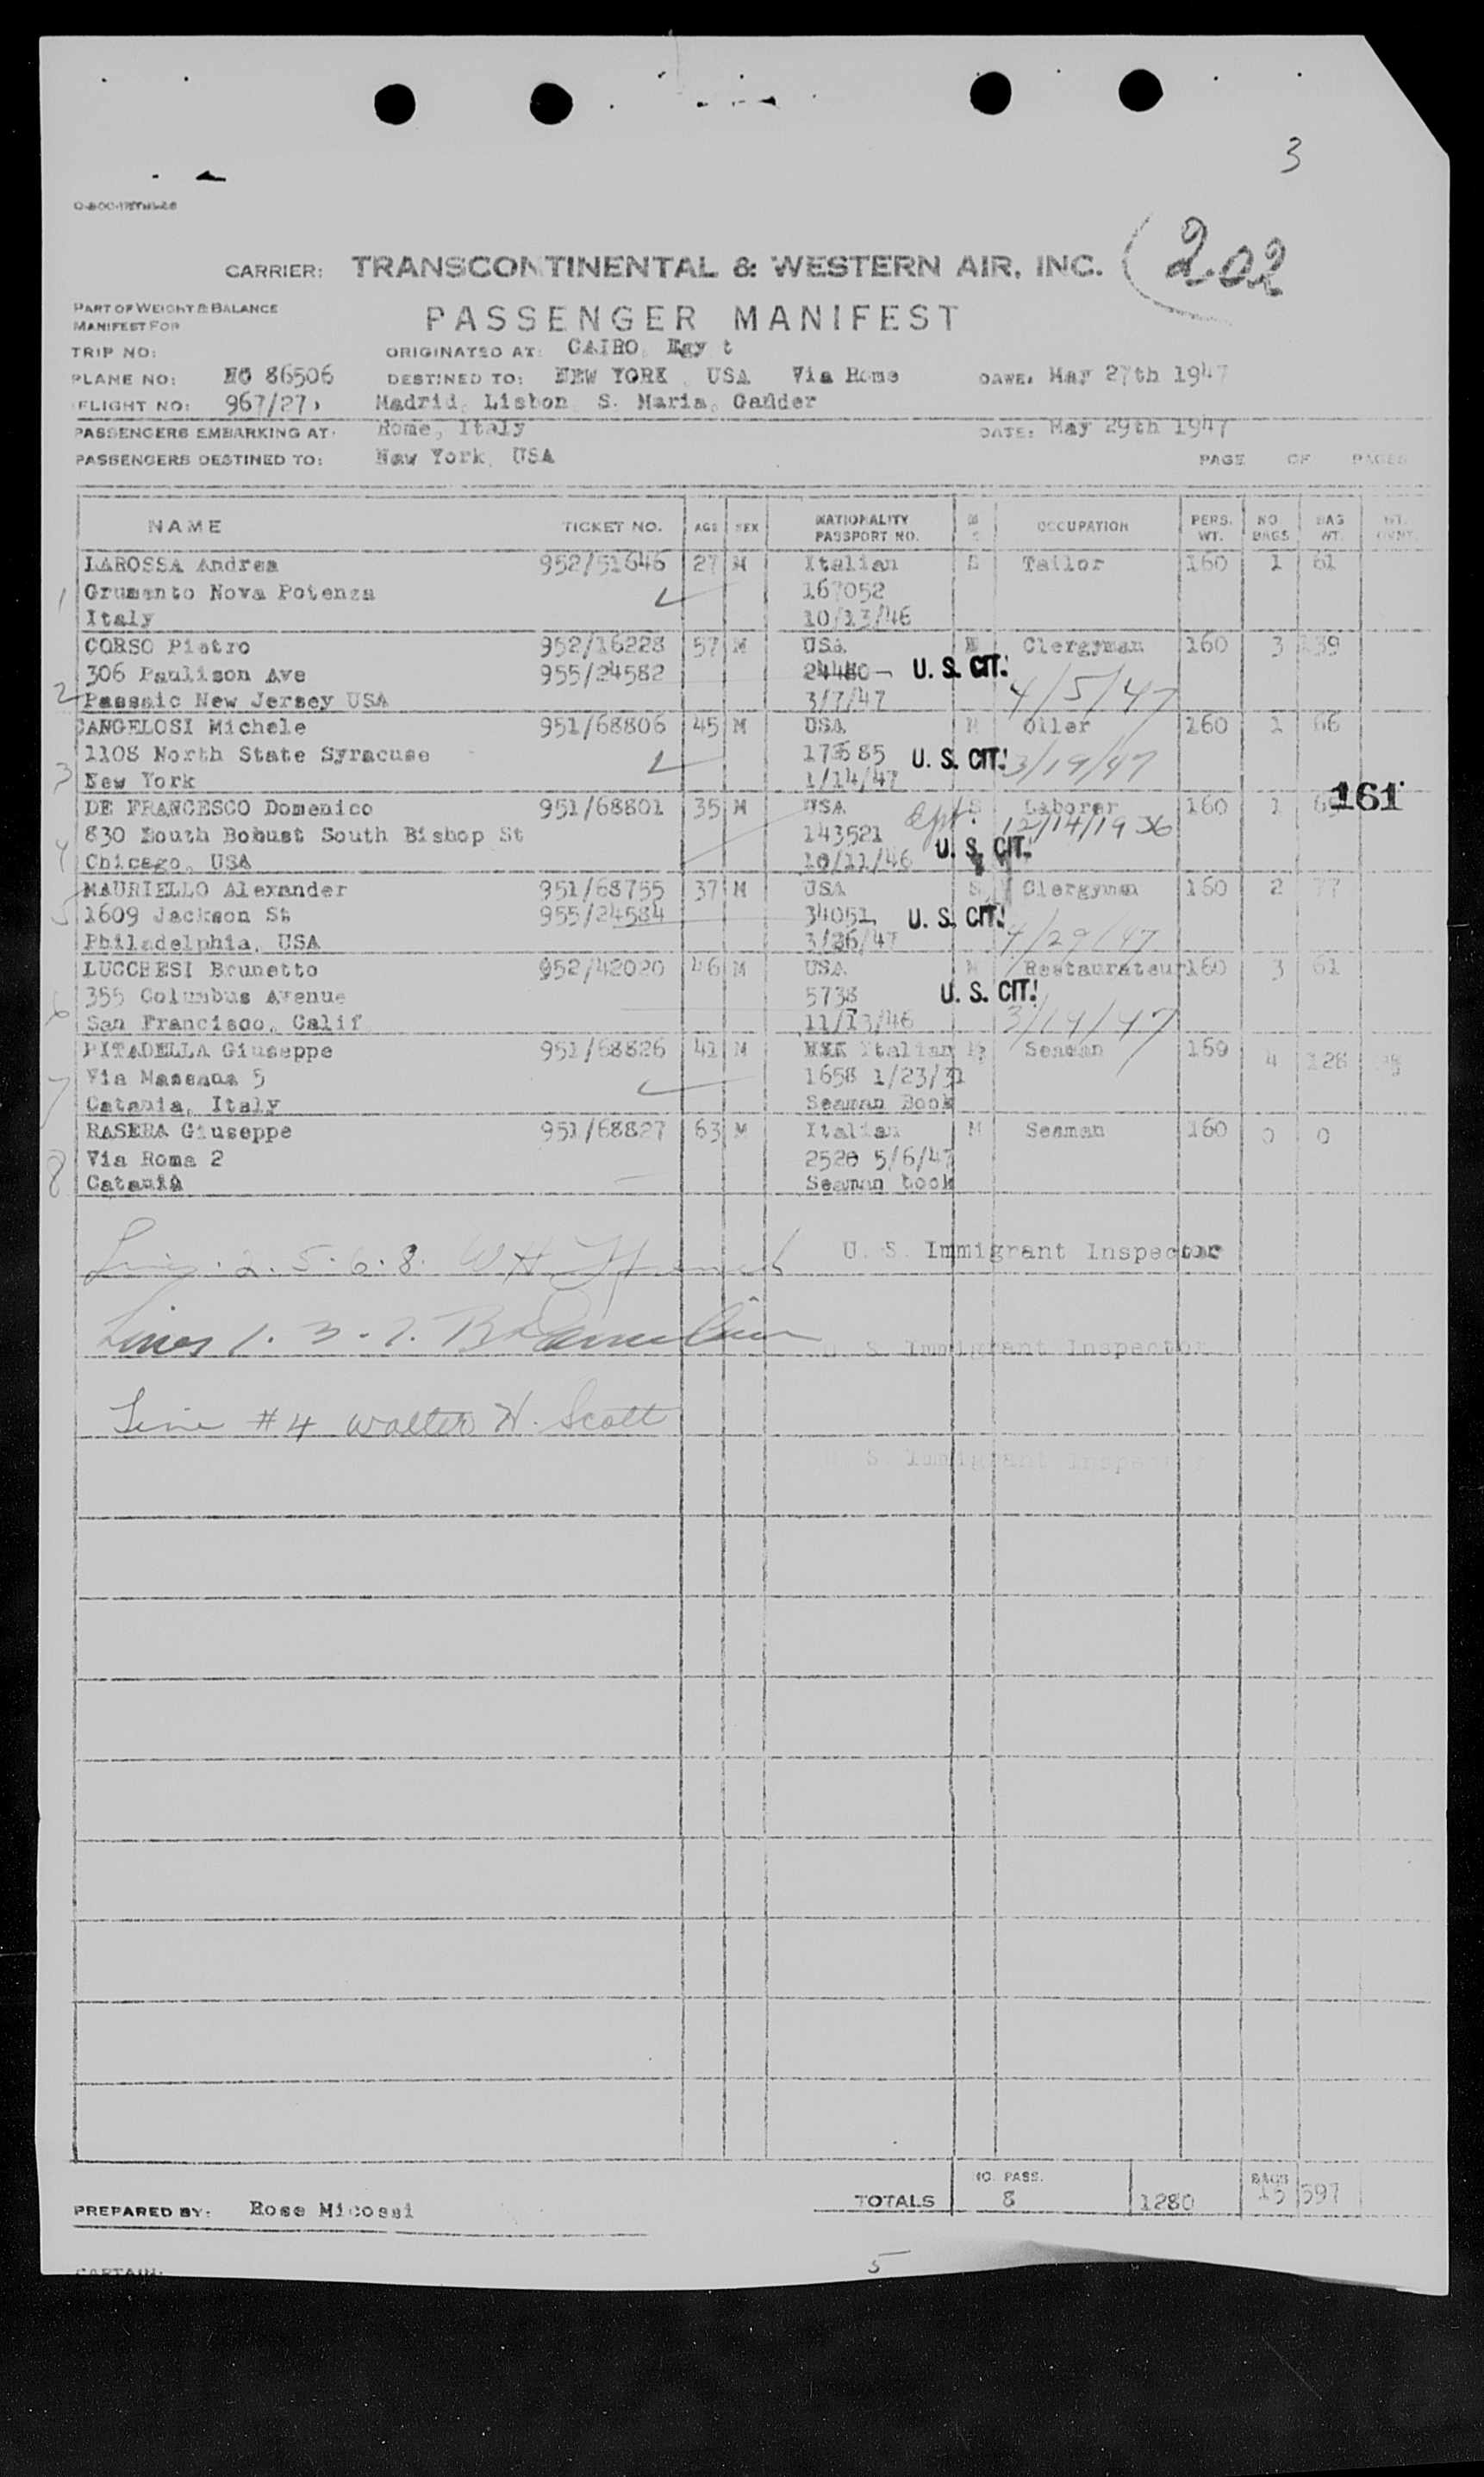 3
CARRIER: TRANSCONTINENTAL & WESTERN AIR, INC. (202
PART OF WEIGHT & BALANCE
MANIFEST FOR
PASSENGER MANIFEST
TRIP NO: ORIGINATED AT: CAIRO, Egy t
PLANE NO: NC 86506 DESTINED TO: NEW YORK, USA Via Rome DATE: May 27th 1947
FLIGHT NO: 967/27 Madrid, Lisbon, S. Maria, Gander
PASSENGERS EMBARKING AT: Rome, Italy DATE: May 29th 1947
PASSENGERS DESTINED TO: New York, USA PAGE OF PAGES
NAME TICKET NO. AGE SEX NATIONALITY PASSPORT NO. M S OCCUPATION PERS. WT. NO. BAGS BAG WT.
LAROSSA Andrea 952/51646 27 M Italian Tailor 160 1 61
1 Grumento Nova Potenza 167052
Italy 10/13/46
CORSO Pietro 952/16228 57 M USA Clergyman 160 3 139
306 Paulison Ave 955/24582 24480 U. S. CIT. 4/5/47
2 Passaic New Jersey USA 3/7/47
CANGELOSI Michele 951/68806 45 M USA M Oiler 160 1 66
1108 North State Syracuse U. S. CIT. 3/19/47
3 New York 1/14/47
DE FRANCESCO Domenico 951/68801 35 M USA S Laborer 160 1 161
830 South Bobust South Bishop St 143521 12/14/1936
4 Chicago, USA 10/11/46 U. S. CIT.
MAURIELLO Alexander 951/68755 37 M USA S Clergyman 160 2 77
5 1609 Jackson St 955/24584 34051 U. S. CIT.
Philadelphia, USA 3/26/47 4/29/47
LUCCHESI Brunetto 952/42020 46 M USA M Restaurateur 160 3 61
6 355 Columbus Avenue 5738 U. S. CIT.
San Francisco, Calif 11/13/46 3/19/47
PITADELLA Giuseppe 951/68826 41 M Italian Seaman 160 4 128
7 Via Massaua 5 1658 1/23/31
Catania, Italy Seaman Book
RASERA Giuseppe 951/68827 63 M Italian M Seaman 160 0 0
Via Roma 2 2520 5/6/47
8 Catania Seaman book
2. 5. 6. 8. W H U. S. Immigrant Inspector
Lines 1. 3. 7. U. S. Immigrant Inspector
Line #4 Walter H. Scott
U. S. Immigrant Inspector
TOTALS NO. PASS. 8 1280 BAGS 15 597
PREPARED BY: Rose Micossi
CAPTAIN:
5